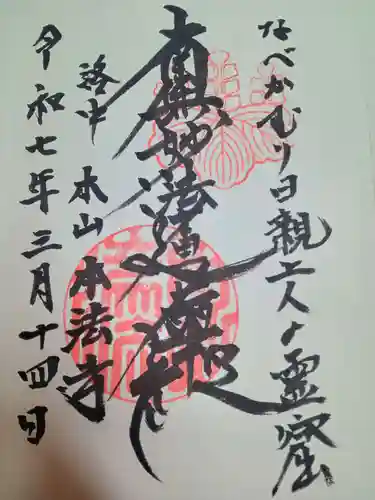 なべかむり日親上人の霊窟
南無妙法蓮華経
洛中 本山 本法寺
令和七年三月十四日